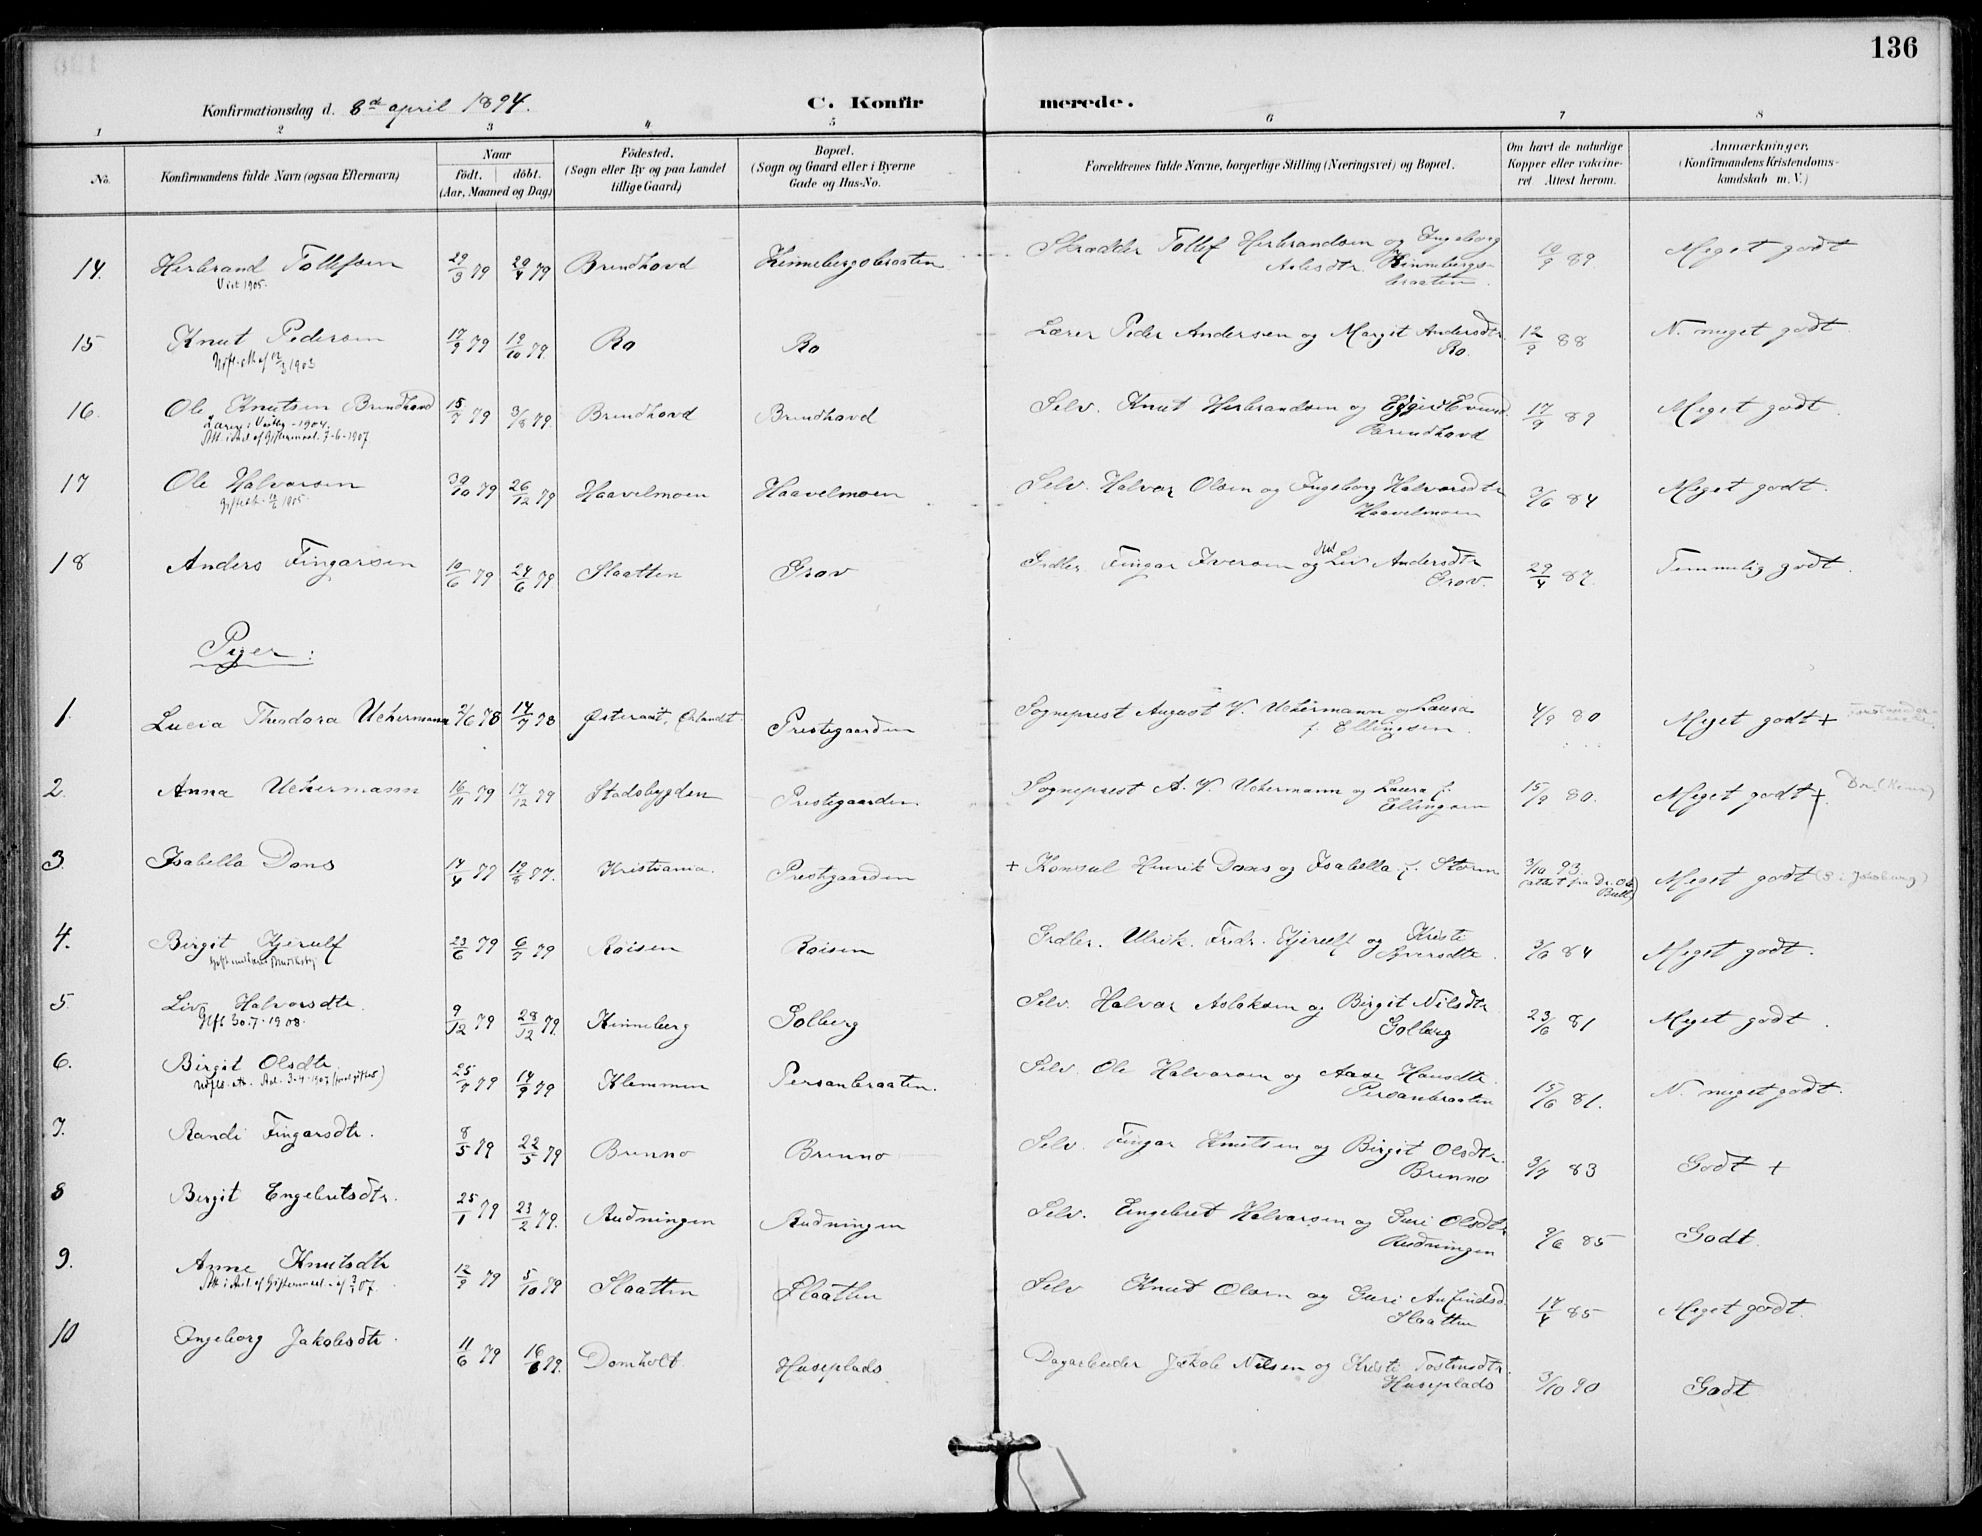 136
Konfirmationsdag d. 8de april 1894.
C. Konfirmerede.
1 2 3 4 5 6 7 8
No. | Konfirmandens fulde Navn (ogsaa Efternavn) | Naar födt. döbt. (Aar, Maaned og Dag) | Födested. (Sogn eller By og paa Landet tillige Gaard) | Bopæl. (Sogn og Gaard eller i Byerne Gade og Hus-No. | Forældrenes fulde Navne, borgerlige Stilling (Næringsvei) og Bopæl. | Om havt de naturlige Kopper eller vakcineret Attest herom. | Anmærkninger. (Konfirmandens Kristendomskundskab m. V.)
14. Herbrand Tollefsen 29/3 79 20/4 79 Brendhovd Kinnebergobraaten Skrædder Tollef Herbrandsen og Ingeborg 10/9 89 Meget godt
Vist 1905. Aslesdtr. Kinnebergs-
braaten.
15 Knut Pedersen 17/9 79 19/10 79. Ro Ro Lærer Peder Andersen og Margit Andersdtr. 12/9 88 N. meget godt.
12/3 1903 Ro.
16. Ole Knutsen Brendhovd 15/7 79 3/8 79 Brendhovd Brendhovd Selv. Knut Herbrandsen og 17/9 89 Meget godt.
Lærer i Vestby - 1904. Brendhovd
Att. i Anl. af Giftermaal. 7-6-1907.
17 Ole Halvorsen 30/10 79 26/12 79 Haavelmoen Haavelmoen Selv. Halvor Olsen og Ingeborg Halvorsdtr 3/6 84 Meget godt.
1905 Haavelmoen
18 Anders Fingarsen 10/6 79 24/6 79. Slaatten Grov Grdbr. Fingar Iversen og Liv Andersdtr 29/4 87. Temmelig godt.
Grov.
Piger:
1. Lucia Theodora Uchermann 2/6 78 14/7 78 Østeraat, Ørlandet Prestegaarden Sogneprest August V. Uchermann og Laura 4/9 80 Meget godt +
f. Ellingsen.
2. Anna Uchermann 16/11 79 17/12 79 Stadsbygden Prestegaarden. Sogneprest A. V. Uchermann og Laura f. 15/9 80. Meget godt +
Ellingsen
3. Isabella Dons 17/4 77 19/8 77. Kristiania. Prestegaarden + Konsul Henrik Dons og Isabella f. Storm 3/10 93 Meget godt
(attest fra Dr. Ole
Bull)
4. Birgit Kjerulf 23/6 79 6/7 79 Roisen Roisen Grdbr. Ulrik Fredr. Kjerulf og Kristi 3/6 84 Meget godt.
Syversdtr.
5 Liv Halvorsdtr. 9/12 79 28/12 79. Kinneberg Golberg Selv. Halvor Aslaksen og Birgit Nilsdtr 23/6 81 Meget godt.
Gift 30-7-1908. Golberg
6. Birgit Olsdtr. 25/7 79 14/9 79 Klemmen Persanbraaten. Selv. Ole Halvorsen og Aase Hansdtr. 15/6 81. N. meget godt.
3-4-1907 Persanbraaten
7. Randi Fingarsdtr. 8/5 79 22/5 79 Brenno Brenno Selv. Fingar Knutsen og Birgit Olsdtr. 3/7 83 Godt +
Brenno
8 Birgit Engebretsdtr. 25/1 79 23/2 79. Rudningen Rudningen Selv. Engebret Halvorsen og Guri Olsdtr 9/6 85 Godt.
Rudningen
9. Anne Knutsdtr 12/9 79 5/10 79 Slaatten Slaatten Selv Knut Olsen og Guri Anfindsd. 17/4 85 Meget godt.
Att. i Anl. af Giftermaal. 07. Slaatten
10 Ingeborg Jakobsdtr. 11/6 79 16/6 79. Domholt Huseplads Dagarbeider Jakob Nilsen og Kristi Tostensdtr. 3/10 90 Godt
Huseplads